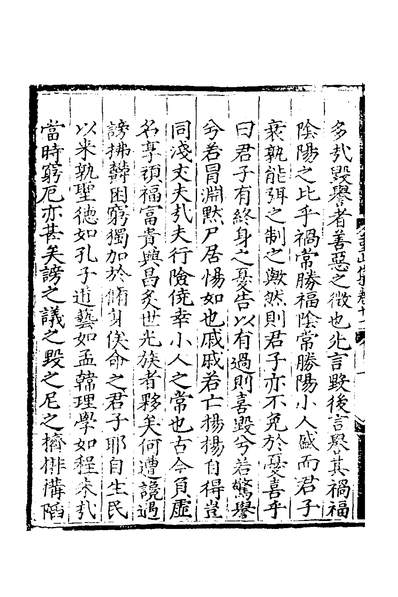 多哉毀譽者善惡之徵也先言毀後言譽其禍福
陰陽之比乎禍常勝福陰常勝陽小人盛而君子
衰孰能弭之制之歟然則君子亦不免於憂喜乎
曰君子有終身之憂告以有過則喜毀兮若驚譽
兮若冒淵默尸居惕如也戚戚若亡揚揚自得豈
同淺丈夫哉夫行險僥幸小人之常也古今負虛
名享頑福富貴興昌炙世光族者夥矣何遭譏遇
謗拂鬱困窮獨加於脩身俟命之君子耶自生民
以來孰聖德如孔子道藝如孟韓理學如程朱哉
當時窮厄亦甚矣謗之議之毀之尼之擠排搆陷